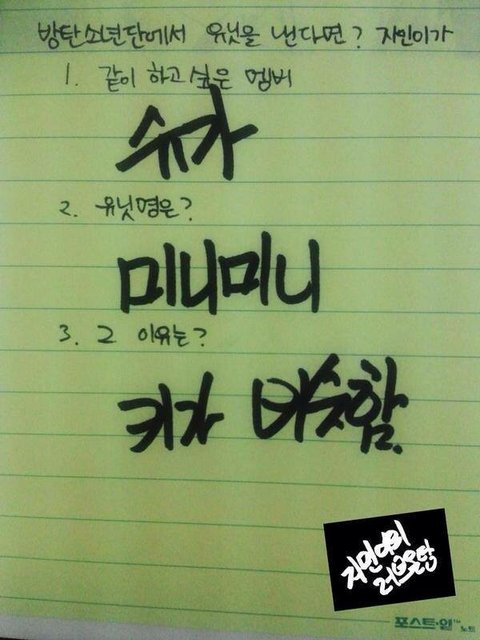 방탄소년단에서 유닛을 낸다면? 지민이가
1. 같이 하고 싶은 멤버
슈가
2. 유닛명은?
미니미니
3. 그 이유는?
키가 비슷함.
지민이의
포스트-잇™ 노트